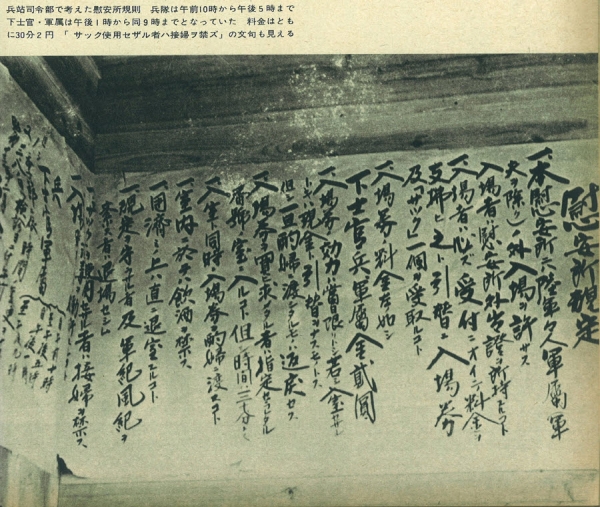 兵站司令部で考えた慰安所規則　兵隊は午前10時から午後5時まで
下士官・軍属は午後1時から同9時までとなっていた　料金はとも
に30分2円　「サック使用セザル者ハ接婦ヲ禁ズ」の文句も見える
慰安所規定
一、本慰安所ニハ陸軍々人軍属(軍
夫ヲ除ク)ノ外入場ヲ許サス
入場者ハ慰安所外出證ヲ所持スルコト
一、入場者ハ必ス受付ニオイテ料金ヲ
支拂ヒ之ト引替ニ入場券
及「サック」一個ヲ受取ルコト
一、入場券ノ料金左ノ如シ
下士官兵軍属金貳圓
一、入場券ノ効力ハ當日限リトシ若シ入室セサル
トキハ現金ト引替ヲナスモノトス
但シ一旦酌婦ニ渡シタルモノハ返戻セス
一、入場券ヲ買ヒ求メタル者ハ指定セラレタル
番號ノ室ニ入ルコト但シ時間ハ三十分トス
一、入室ト同時ニ入場券ヲ酌婦ニ渡スコト
一、室内ニ於テハ飲酒ヲ禁ス
一、用済ミノ上ハ直ニ退室スルコト
一、規定ヲ守ラサル者及軍紀風紀ヲ
紊ス者ハ退場セシム
一、サックヲ使用セサル者ハ接婦ヲ禁ス